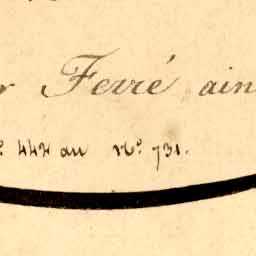 r Ferré ain
o. 442 au No. 731.